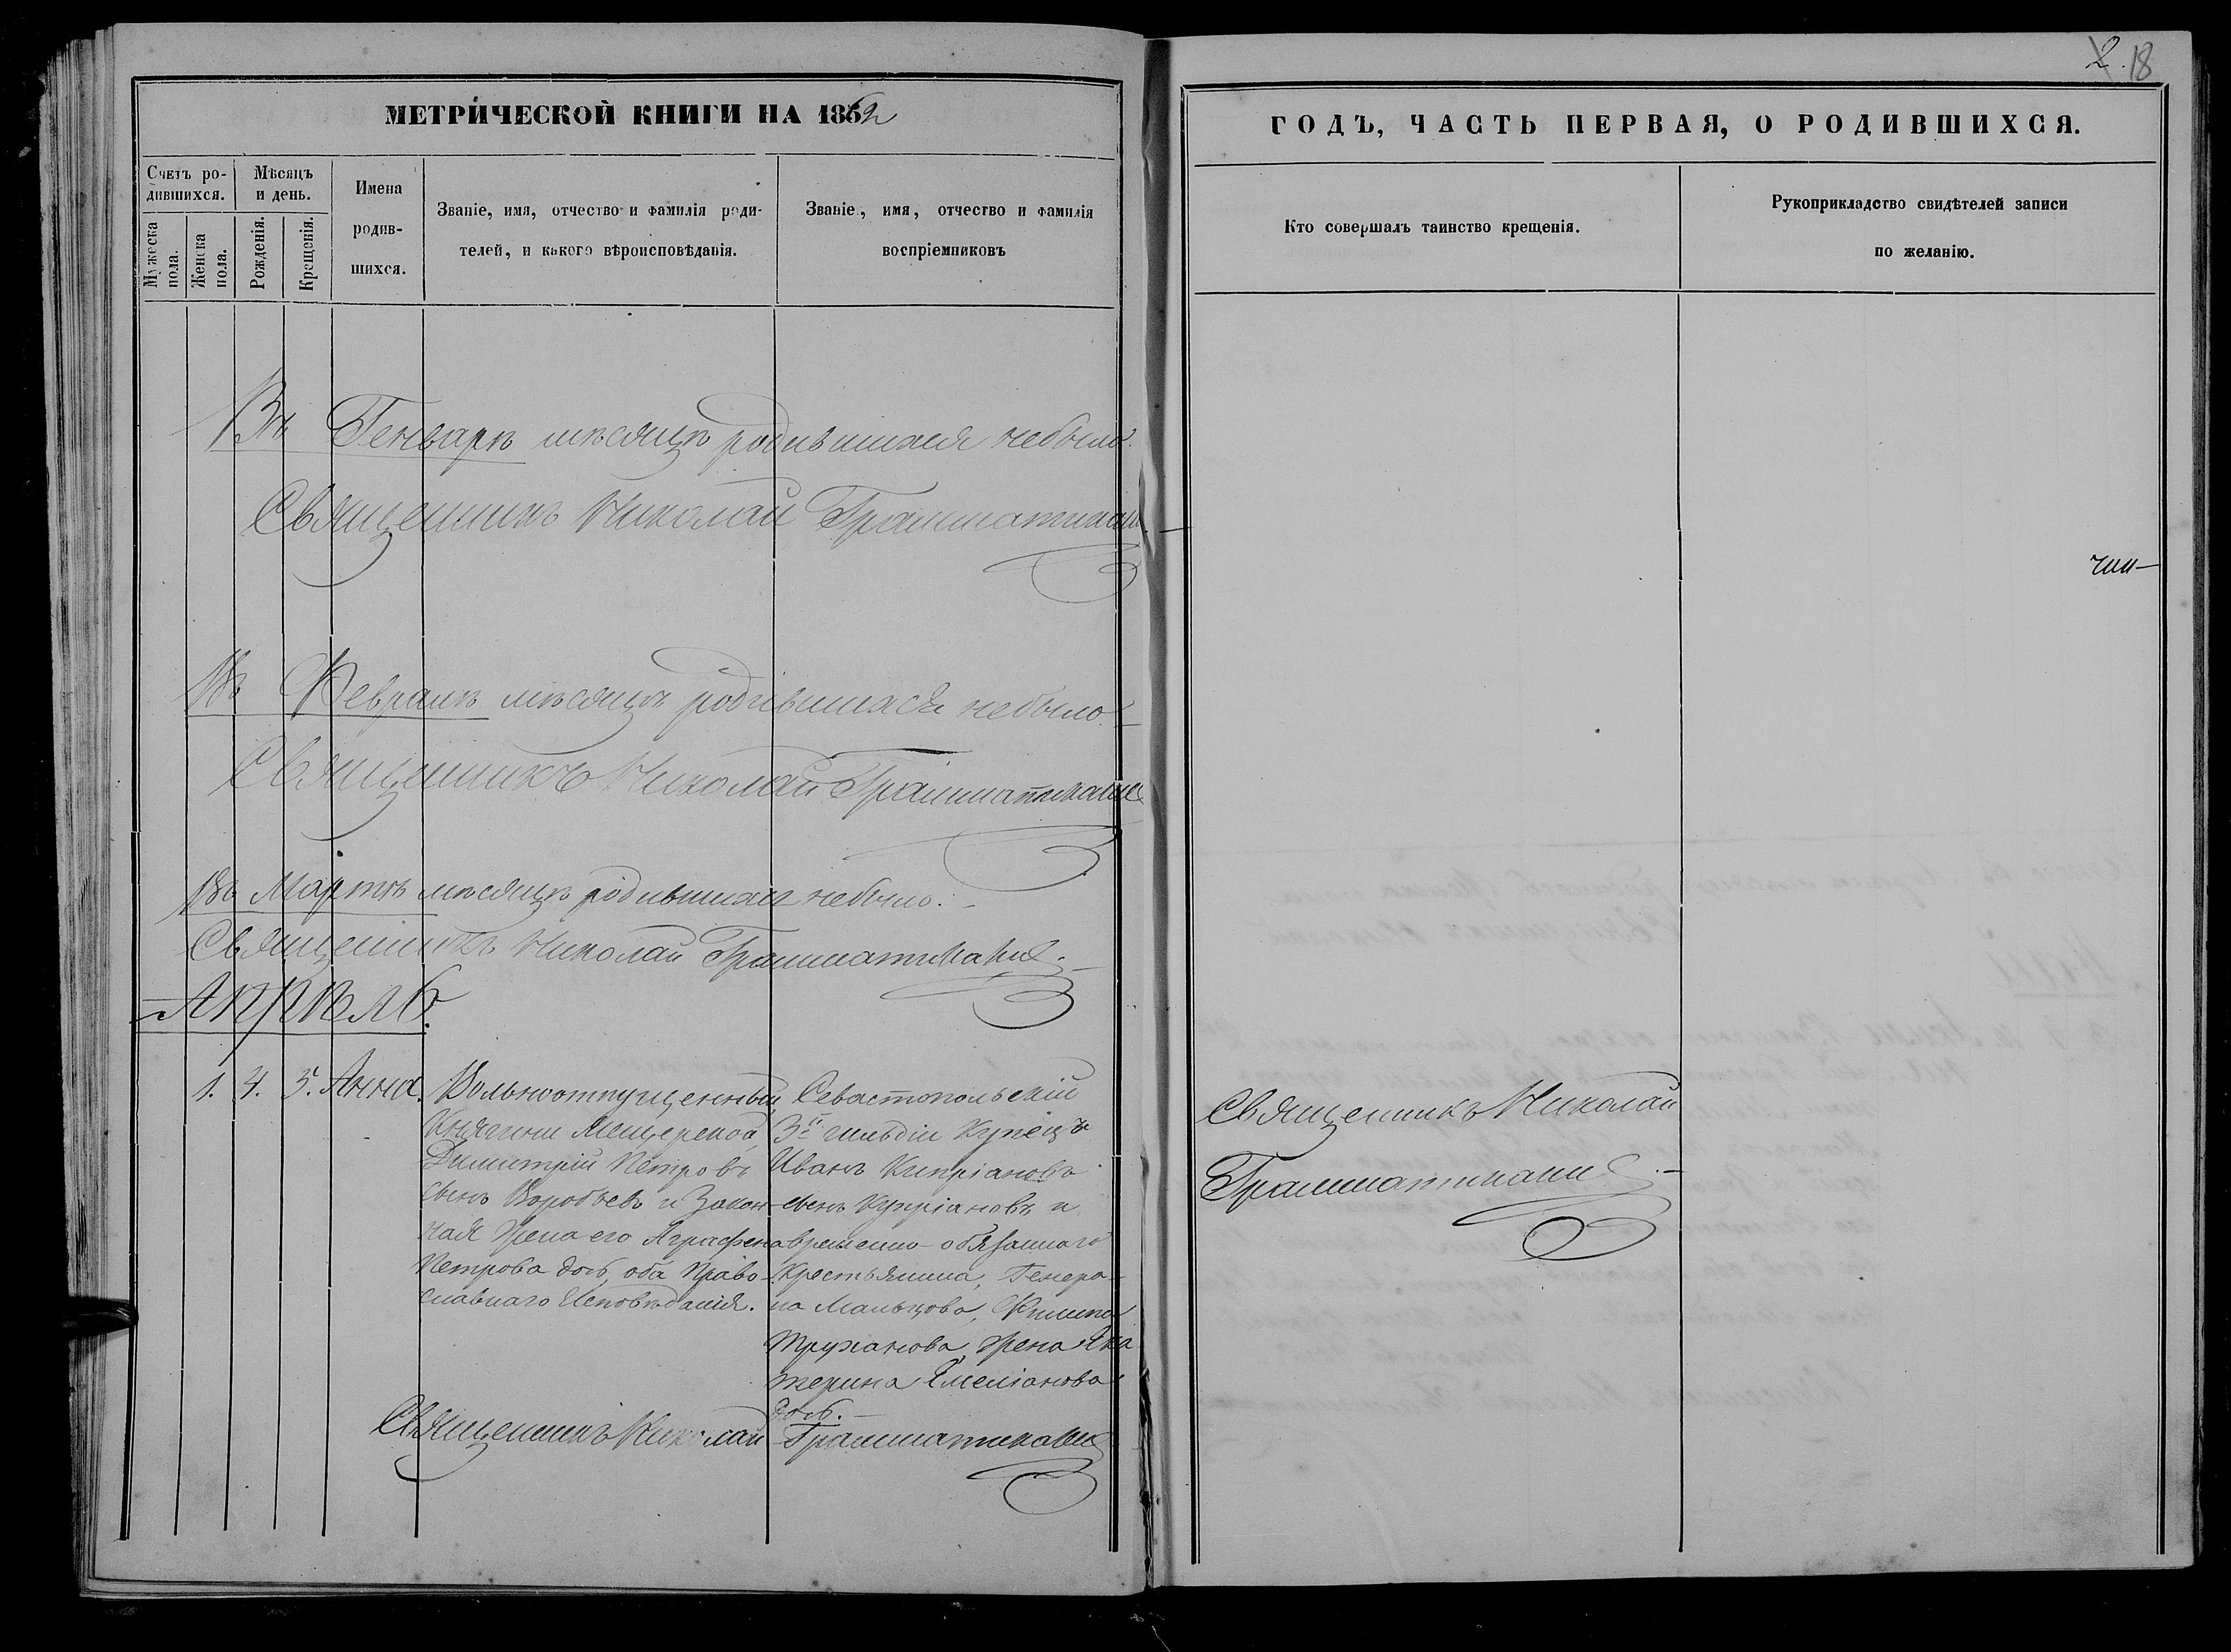 2. 18
МЕТРИ́ЧЕСКОЙ КНИГИ НА 1862
ГОДЪ, ЧАСТЬ ПЕРВАЯ, О РОДИВШИХСЯ.
Счетъ ро-
дившихся.
Мужеска
пола.
Женска
пола.
Мѣсяцъ
и день.
Рожденія.
Крещенія.
Имена
родив-
шихся.
Званіе, имя, отчество и фамилія роди-
телей, и какого вѣроисповѣданія.
Званіе, имя, отчество и фамилія
воспріемниковъ
Кто совершалъ таинство крещенія.
Рукоприкладство свидѣтелей записи
по желанію.
Въ Генварѣ мѣсяцѣ родившихся небыло.
Священникъ Николай
Въ Февралѣ мѣсяцѣ родившихся небыло.
Священникъ Николай
Въ Мартѣ мѣсяцѣ родившихся небыло.
Священникъ Николай
Апрѣль.
1. 4. 5. Анна.
Вольноотпущенный
Княгини Мещерской
Димитрій Петровъ
сынъ Воробьевъ и Закон-
ная жена его Аграфена
Петрова дочь, оба Право-
славнаго Исповѣданія.
Севастопольскій
3й гильдіи Купецъ
Иванъ Кипріановъ
сынъ Купріановъ и
временно-обязаннаго
Крестьянина, Генера-
ла Мальцова, Филипа
Труханова, жена Ека
терина Емеліанова
дочь.
Священникъ Николай
Священникъ Николай